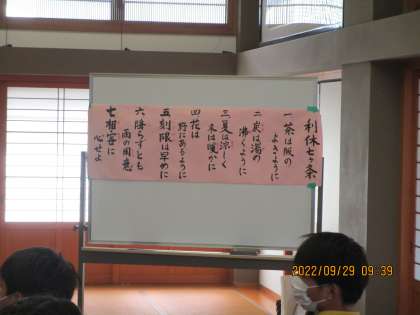 利休七ヶ条
一 茶は服の
よきように
二 炭は湯の
沸くように
三 夏は涼しく
冬は暖かに
四 花は
野にあるように
五 刻限は早めに
六 降らずとも
雨の用意
七 相客に
心せよ
2022/09/29 09:39